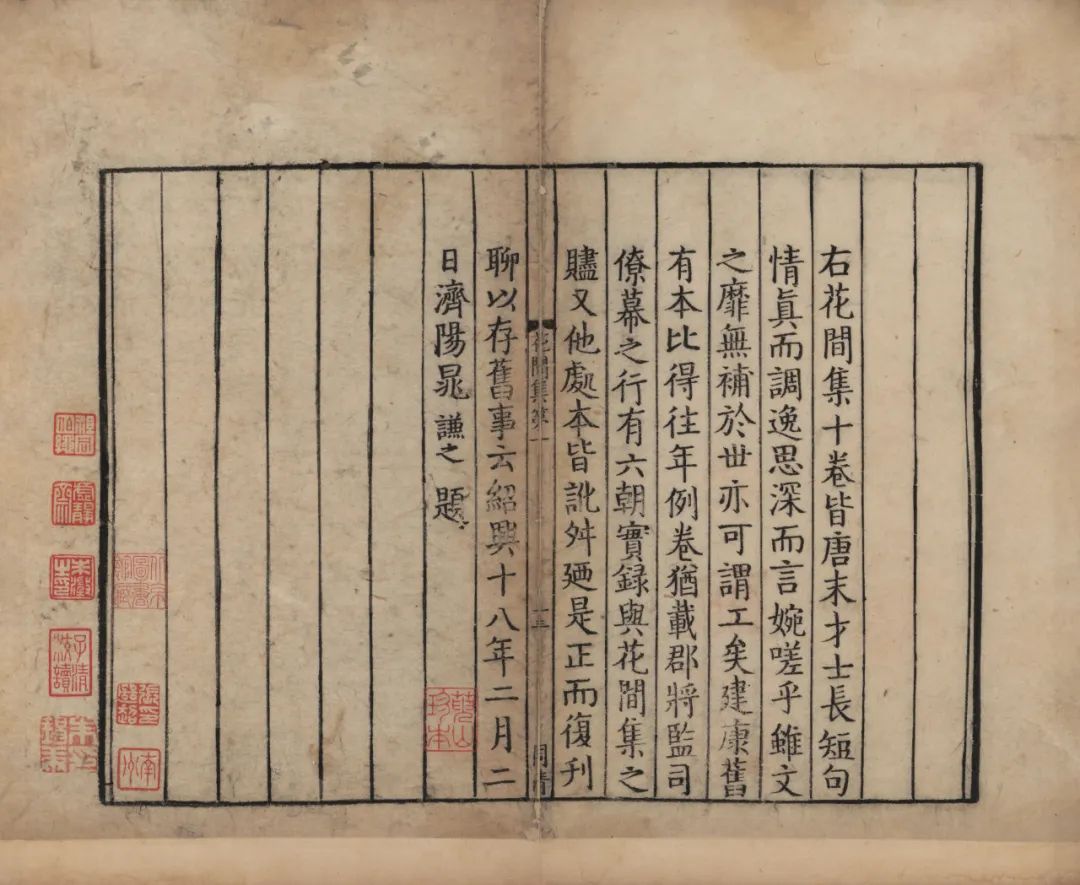 右花間集十卷皆唐末才士長短句
情眞而調逸思深而言婉嗟乎雖文
之靡無補於世亦可謂工矣建康舊
有本比得往年例卷猶載郡將監司
僚幕之行有六朝實録與花間集之
贐又他處本皆訛舛廼是正而復刋
聊以存舊事云紹興十八年二月二
日濟陽晁謙之題
花間集第一